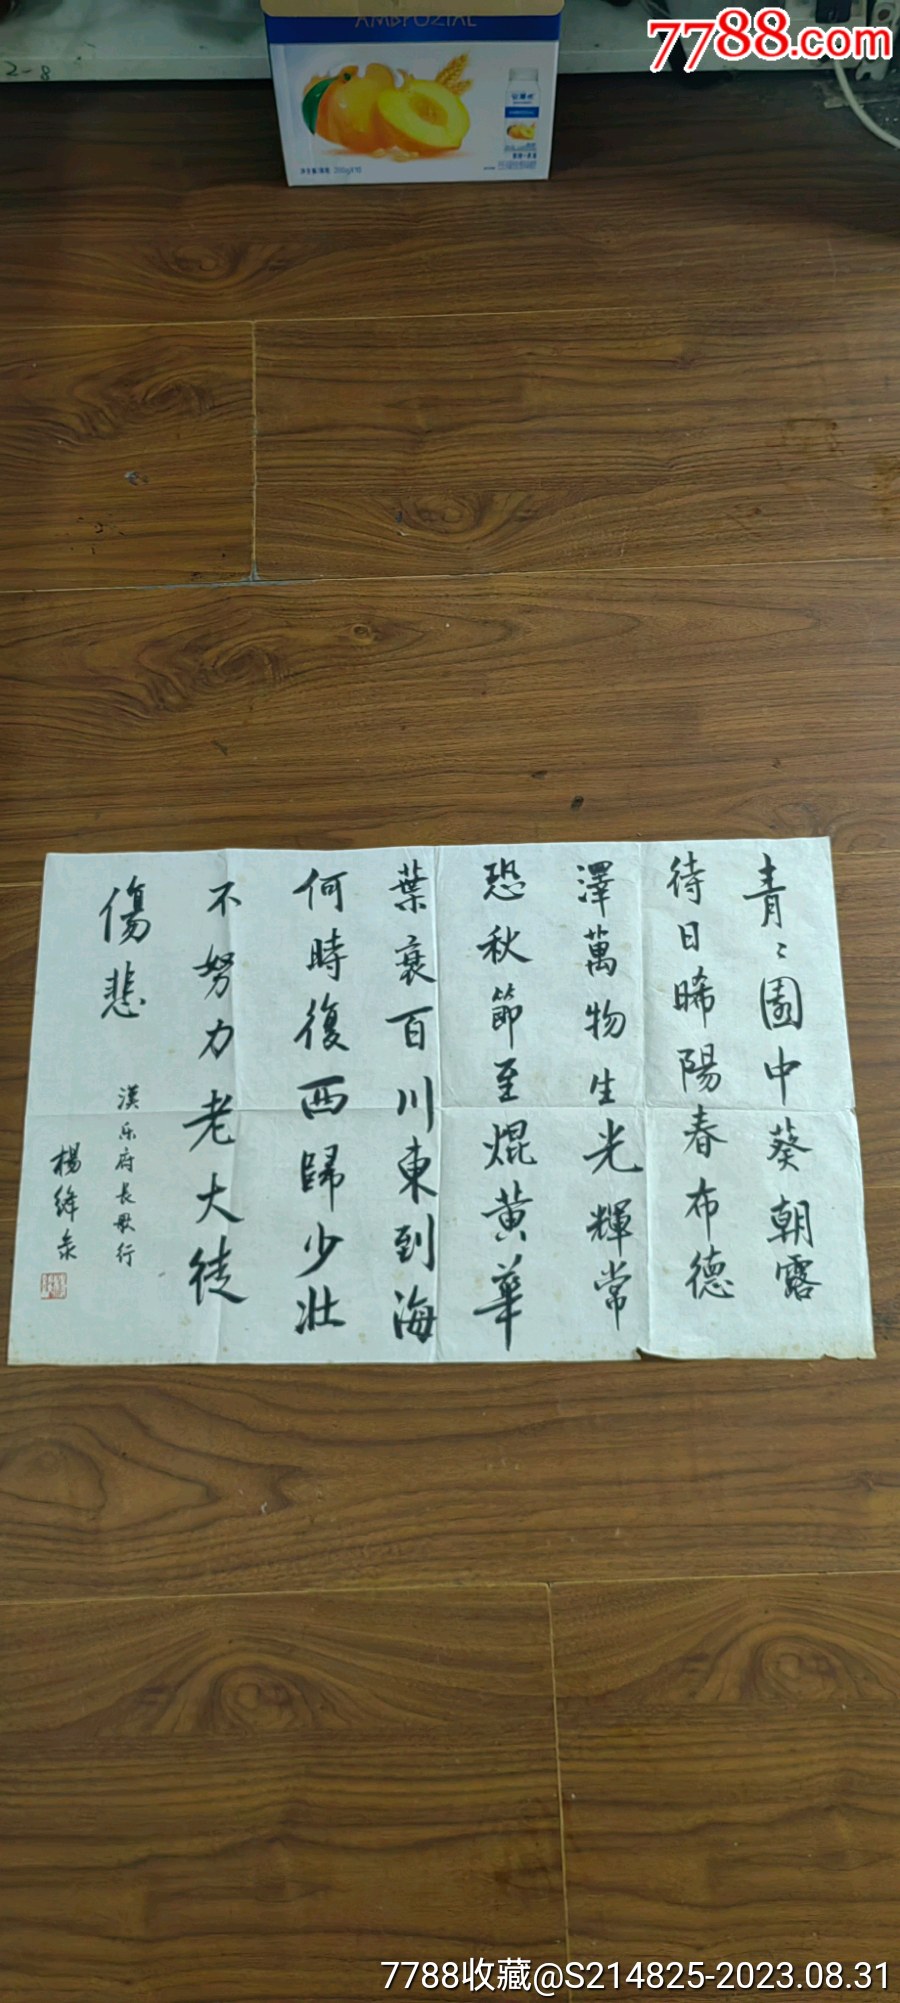 AMBPOZIAL
7788.com
2-8
净含量/规格: 200g×10
青〻園中葵朝露
待日晞陽春布德
澤萬物生光輝常
恐秋節至焜黃華
葉衰百川東到海
何時復西歸少壯
不努力老大徒
傷悲
漢乐府長歌行
楊絳录
7788收藏@S214825-2023.08.31